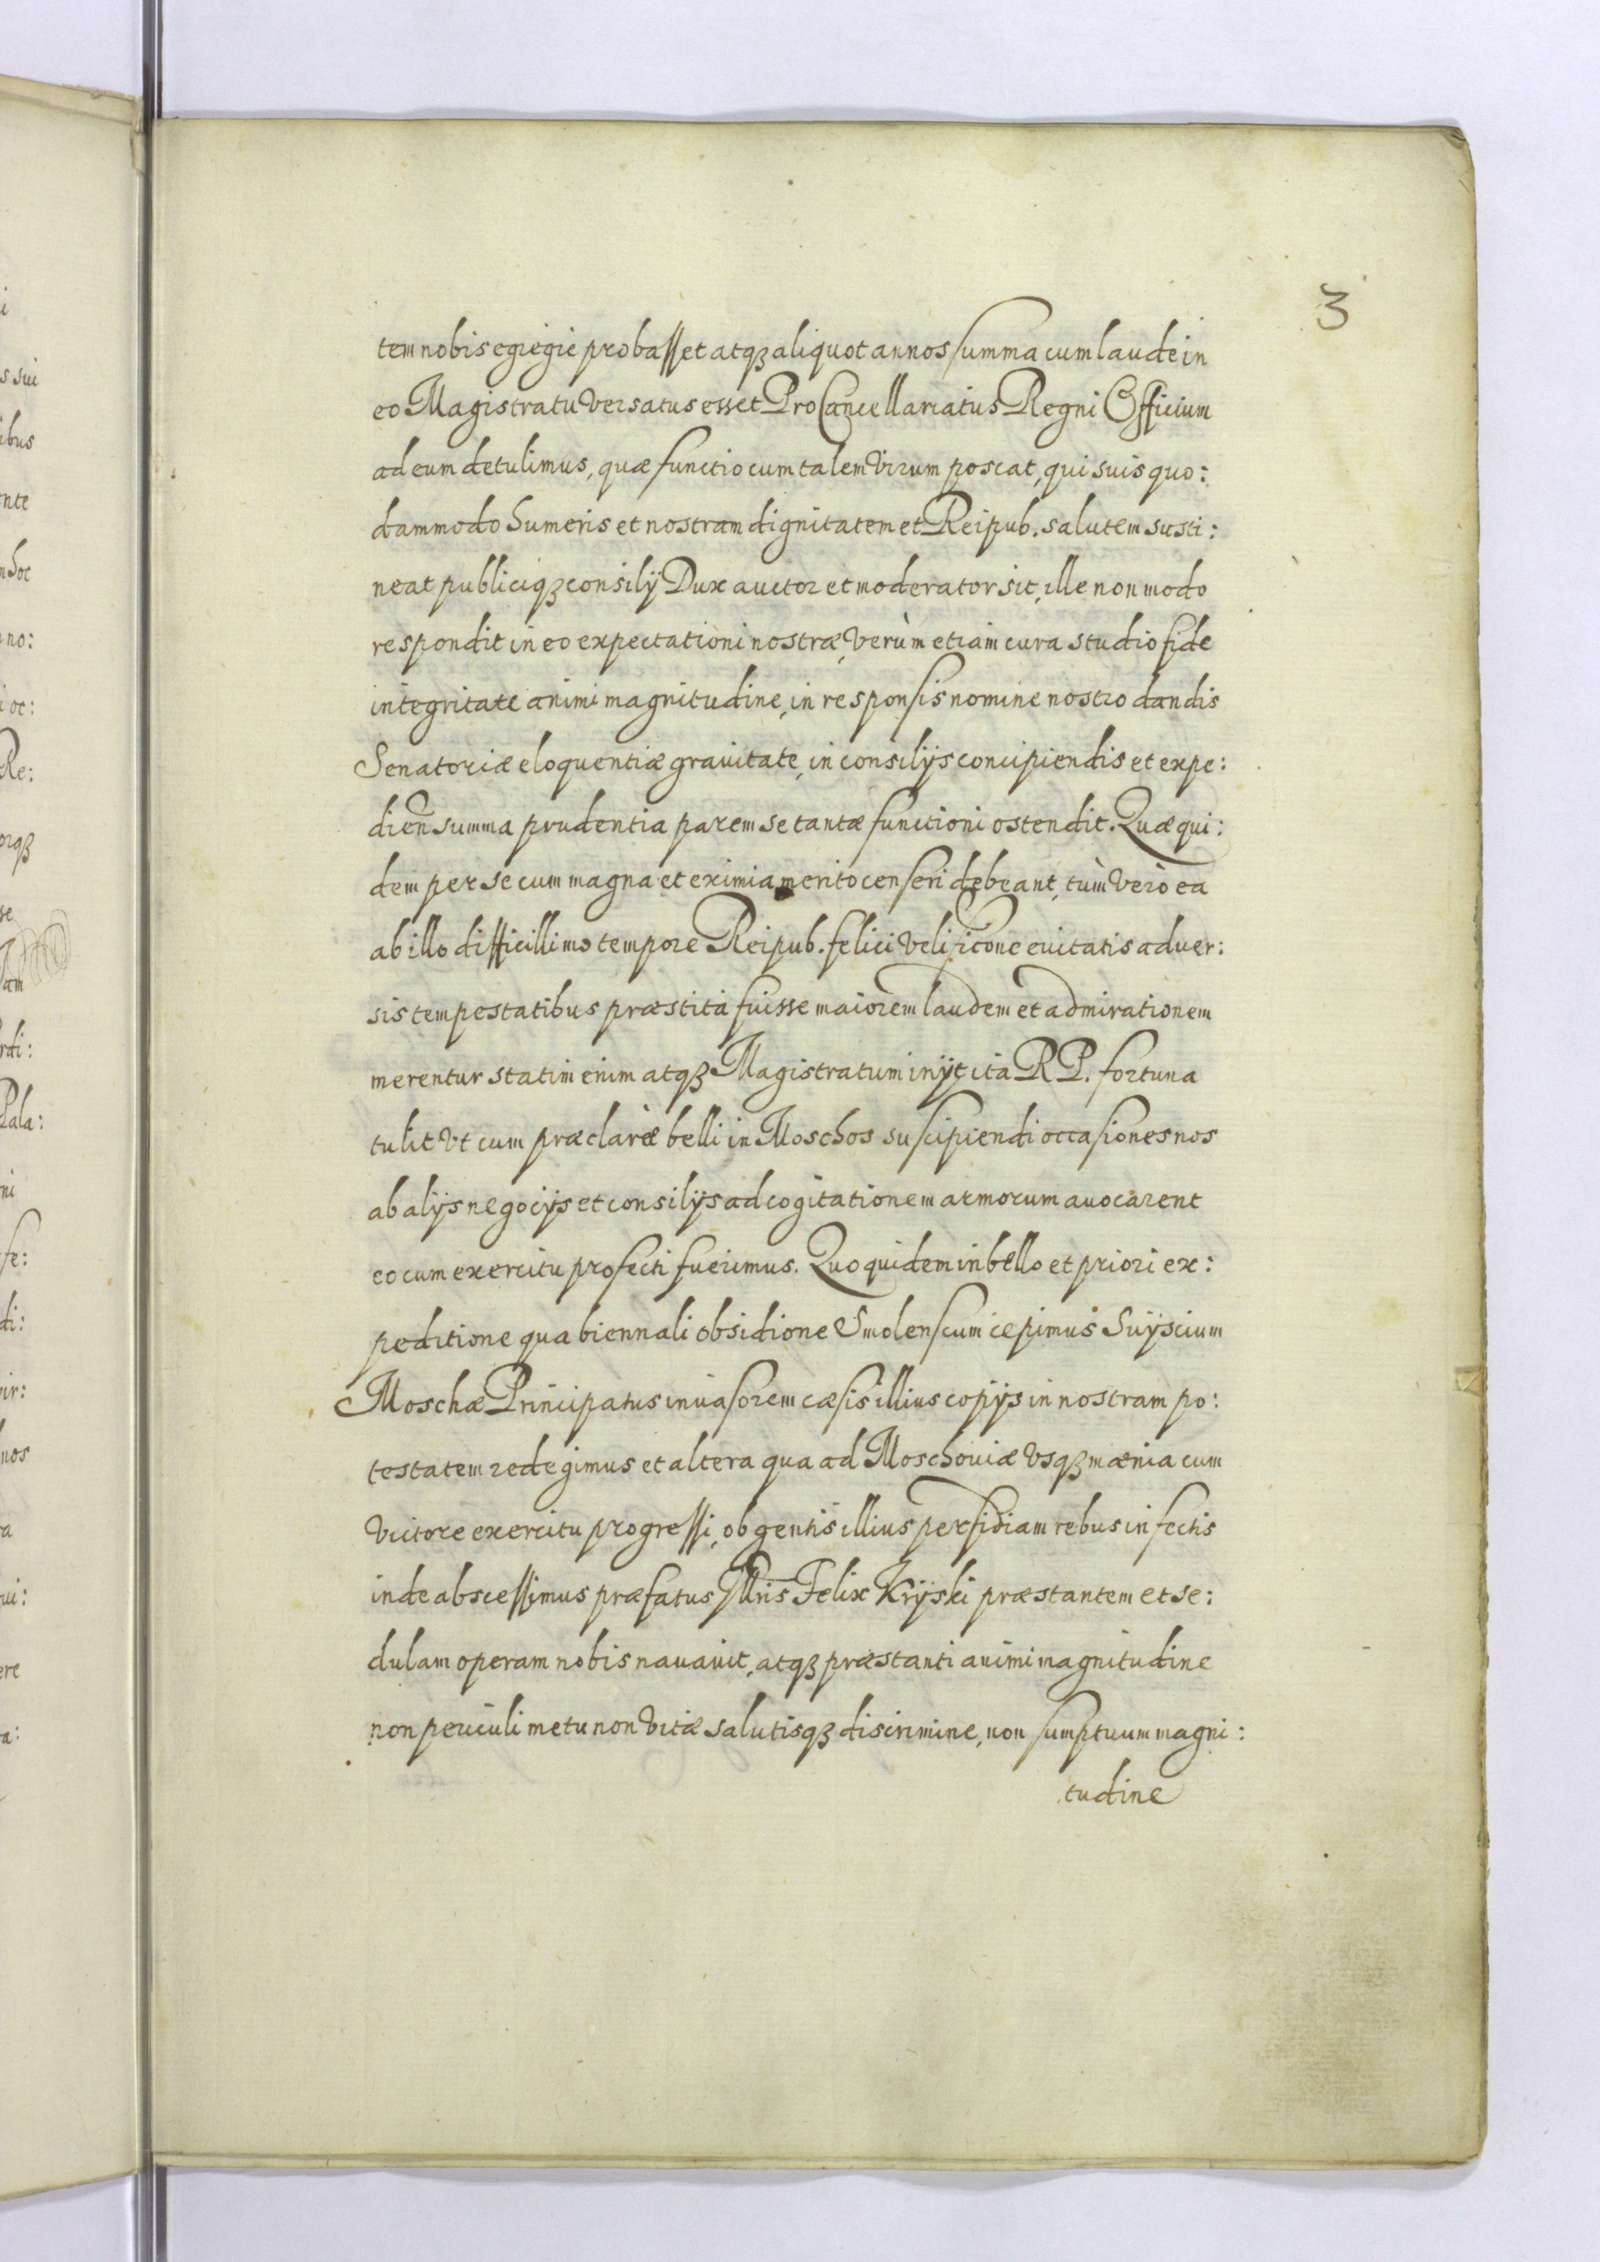 3
tem nobis egregie probasset atq3 aliquot annos summa cum laude in
eo Magistratu versatus esset ProCancellariatus Regni Officium
ad eum detulimus, quæ functio cum talem virum poscat, qui suis quo:
dammodo humeris et nostram dignitatem et Reipub. salutem susti:
neat publiciq3 consilÿ Dux auctor et moderator sit, ille non modo
respondit in eo expectationi nostræ, verùm etiam cura studio fide
integritate animi magnitudine, in responsis nomine nostro dandis
Senatoriæ eloquentiæ grauitate, in consilÿs concipiendis et expe:
dien summa prudentia parem se tantæ functioni ostendit. Quæ qui:
dem per se cum magna et eximia merito censeri debeant, tùm verò ea
ab illo difficillimo tempore Reipub. felici velificone euitatis aduer:
sis tempestatibus præstita fuisse maiorem laudem et admirationem
merentur statim enim atq3 Magistratum inÿt ita RP. fortuna
tulit vt cum præclaræ belli in Moschos suscipiendi occasiones nos
ab alÿs negocÿs et consilÿs ad cogitationem armorum auocarent
eo cum exercitu profecti fuerimus. Quo quidem in bello et priori ex:
peditione qua biennali obsidione Smolenscum cepimus Suÿscium
Moschæ Principatus inuasorem cæsis illius copÿs in nostram po:
testatem redegimus et altera qua ad Moschouiæ vsq3 mænia cum
victore exercitu progressi, ob gentis illius perfidiam rebus infectis
inde abscessimus præfatus Illris Felix Krÿski præstantem et se:
dulam operam nobis nauauit, atq3 præstanti animi magnitudine
non periculi metu non vitæ salutisq3 discrimine, non sumptuum magni:
tudine